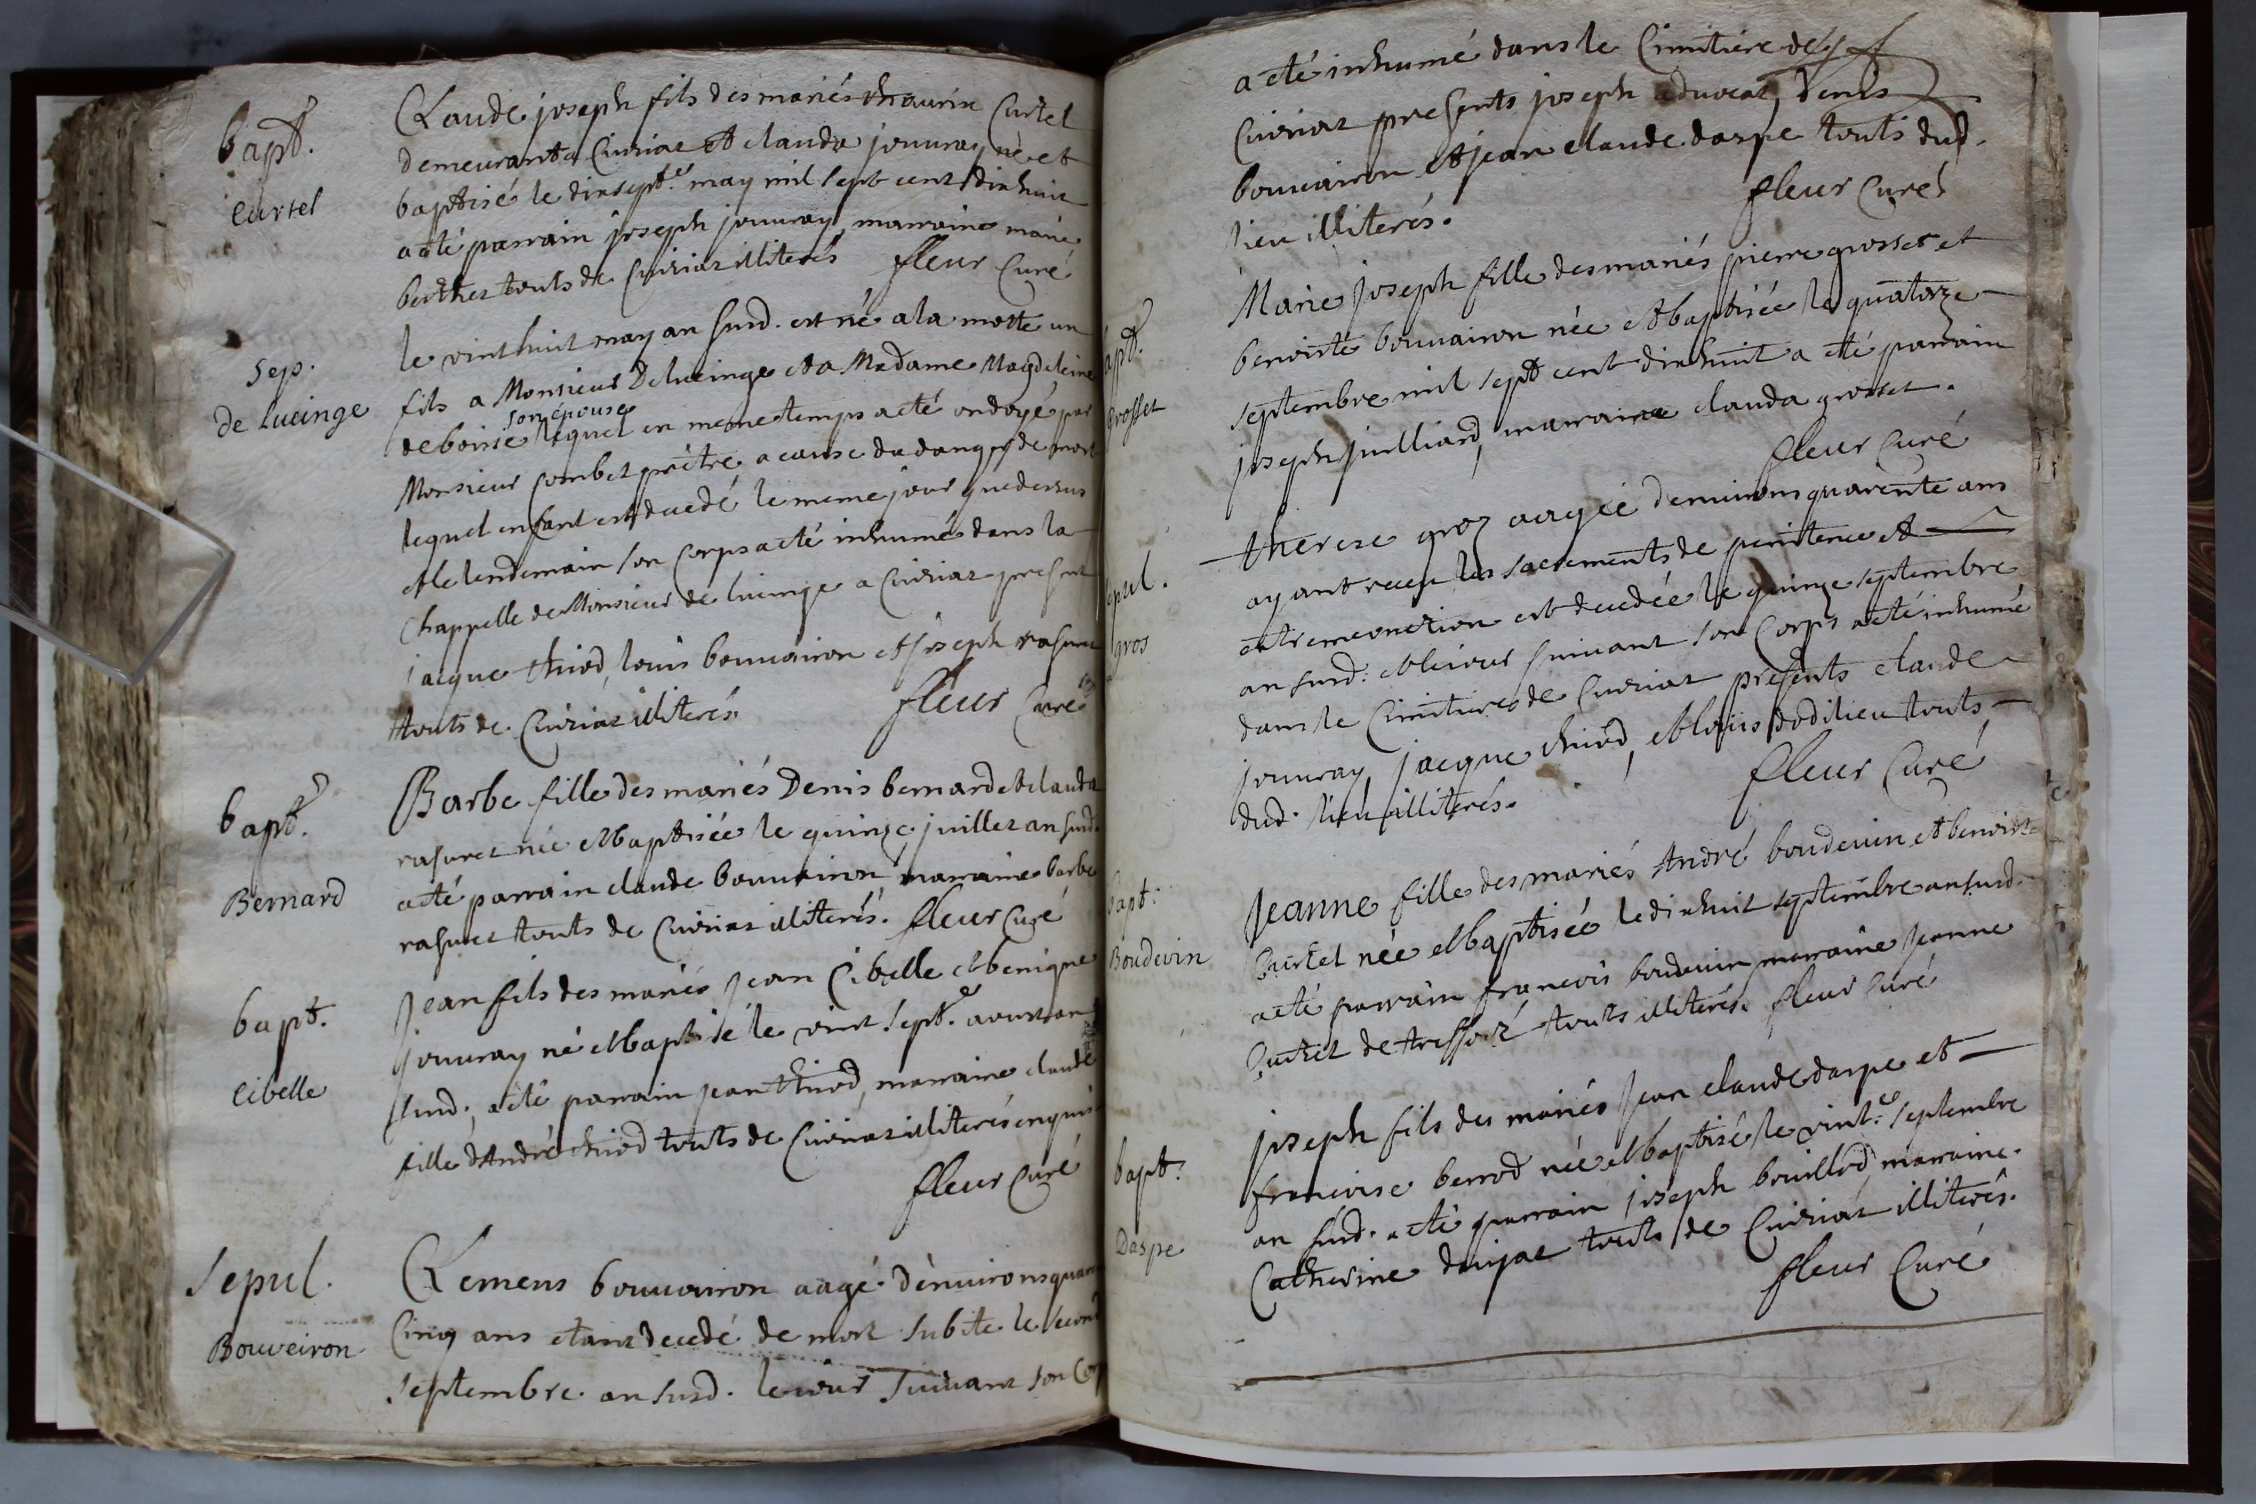 bapt.
Curtel
Claude joseph fils des mariés thaurin Curtel
demeurant a Cuiriat et clauda jouuray né et
baptisé le dixsept.e may mil sept cent dixhuit
a été parrain joseph jouuray, marraine marie
berthet touts de Cuiriat illiterés fleur Curé
Sep.
De Lucinge
le vint huit may an susd. est né a la motte un
fils a Monsieur Delucinge et a Madame Magdeleine
son épouse
deboisse lequel en meme temps a été ondoyé par
Monsieur Combet prêtre a cause du danger de mort
lequel enfant est decedé le meme jour que dessus
et le lendemain son corps a été inhumé dans la
Chappelle de Monsieur de lucinge a Cuiriat present
jacque thiod, louis bouuairon et joseph rasuret
touts de Cuiriat illiterés. fleur Curé
bapt.
Bernard
Barbe fille des mariés Denis bernard et clauda
rasuret née et baptisée le quinze juillet an susd.
a été parrain claude bouuairon, marraine barbe
rasuret touts de Cuiriat illiterés. fleur Curé
bapt.
Cibelle
Jean fils des mariés Jean Cibelle et benigne
jouuray né et baptisé le vint sept.e aoust an
susd. a été parrain jean thiod, marraine claude
fille d'André thiod touts de Cuiriat illiterés enquis
fleur Curé
Sepul.
Bouveiron
Clemens bouuairon aagé d'enuirons quara
Cinq ans etant decedé de mort subite le second
septembre an susd. le jour suiuant son Corp
a été inhumé dans le Cimitiere de
Cuiriat presents joseph aduocat, denis
bouuairon et jean claude daspe touts dud.
lieu illiterés. fleur Curé
apt.
Grosset
Marie joseph fille des mariés pierre grosset et
benoiste bouuairon née et baptisée le quatorze
septembre mil sept cent dixhuit a été parrain
joseph juilliard, marraine clauda grosset.
fleur Curé
epul.
gros
therese groz aagée d'enuirons quarente ans
ayant receu les sacrements de penitence et
extremeonction est decedée le quinze septembre
an susd. et le jour suiuant son Corps a été inhumé
dans le Cimitiere de Cuiriat presents claude
jouuray, jacque thiod, et louis dodilieu touts
dud. lieu illiterés. fleur Curé
bapt.
Boudevin
Jeanne fille des mariés André boudeuin et benoiste
Curtet née et baptisée le dixhuit septembre an susd.
a été parrain francois boudeuin marraine Jeanne
de touts illiterés. fleur Curé
bapt.
Daspe
joseph fils des mariés Jean claude daspe et
francoise berrod née et baptisé le vint.e septembre
an susd. a été parrain joseph bouillod, marraine.
Catherine touts de Cuiriat illiterés.
fleur Curé